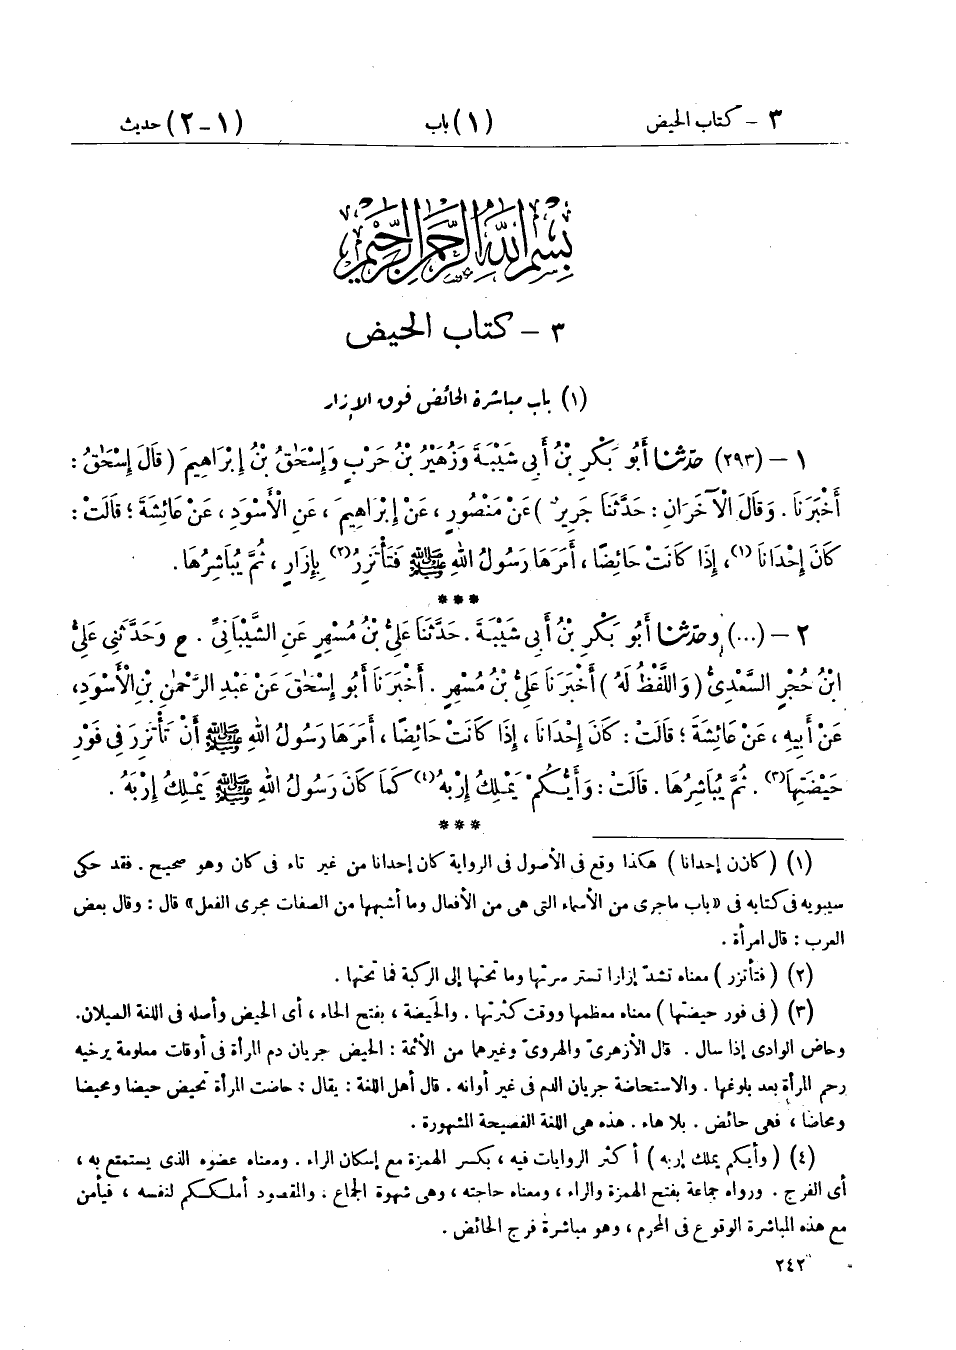 ٣ - كتاب الحيض (١) باب (١-٢) حديث
بسم الله الرحمن الرحيم
٣ - كتاب الحيض
(١) باب مباشرة الحائض فوق الإزار
١ - (٢٩٣) حدّثنا أَبُو بَكْرِ بْنُ أَبِي شَيْبَةَ وَزُهَيْرُ بْنُ حَرْبٍ وَإِسْحَٰقُ بْنُ إِبْرَاهِيمَ (قَالَ إِسْحَٰقُ:
أَخْبَرَنَا. وَقَالَ الْآخَرَانِ: حَدَّثَنَا جَرِيرٌ) عَنْ مَنْصُورٍ، عَنْ إِبْرَاهِيمَ، عَنِ الْأَسْوَدِ، عَنْ عَائِشَةَ؛ قَالَتْ:
كَانَ إِحْدَانَا (١)، إِذَا كَانَتْ حَائِضًا، أَمَرَهَا رَسُولُ اللهِ ﷺ فَتَأْتَزِرُ (٢) بِإِزَارٍ، ثُمَّ يُبَاشِرُهَا.
***
٢ - (...) وحدّثنا أَبُو بَكْرِ بْنُ أَبِي شَيْبَةَ. حَدَّثَنَا عَلِيُّ بْنُ مُسْهِرٍ عَنِ الشَّيْبَانِيِّ. ح وَحَدَّثَنِي عَلِيُّ
ابْنُ حُجْرٍ السَّعْدِيُّ (وَاللَّفْظُ لَهُ) أَخْبَرَنَا عَلِيُّ بْنُ مُسْهِرٍ. أَخْبَرَنَا أَبُو إِسْحَٰقَ عَنْ عَبْدِ الرَّحْمَٰنِ بْنِ الْأَسْوَدِ،
عَنْ أَبِيهِ، عَنْ عَائِشَةَ؛ قَالَتْ: كَانَ إِحْدَانَا، إِذَا كَانَتْ حَائِضًا، أَمَرَهَا رَسُولُ اللهِ ﷺ أَنْ تَأْتَزِرَ فِي فَوْرِ
حَيْضَتِهَا (٣). ثُمَّ يُبَاشِرُهَا. قَالَتْ: وَأَيُّكُمْ يَمْلِكُ إِرْبَهُ (٤) كَمَا كَانَ رَسُولُ اللهِ ﷺ يَمْلِكُ إِرْبَهُ.
***
(١) (كان إحدانا) هكذا وقع فى الأصول فى الرواية كان إحدانا من غير تاء فى كان وهو صحيح. فقد حكى
سيبويه فى كتابه فى «باب ماجرى من الأسماء التى هى من الأفعال وما أشبهها من الصفات مجرى الفعل» قال: وقال بعض
العرب: قال امرأة.
(٢) (فتأتزر) معناه تشدّ إزارا تستر سرتها وما تحتها إلى الركبة فما تحتها.
(٣) (فى فور حيضتها) معناه معظمها ووقت كثرتها. والحَيضة، بفتح الحاء، أى الحيض وأصله فى اللغة السيلان.
وحاض الوادى إذا سال. قال الأزهرىّ والهروىّ وغيرهما من الأئمة: الحيض جريان دم المرأة فى أوقات معلومة يرخيه
رحم المرأة بعد بلوغها. والاستحاضة جريان الدم فى غير أوانه. قال أهل اللغة: يقال: حاضت المرأة تحيض حيضا ومحيضا
ومحاضا، فهى حائض. بلا هاء. هذه هى اللغة الفصيحة المشهورة.
(٤) (وأيكم يملك إربه) أكثر الروايات فيه، بكسر الهمزة مع إسكان الراء. ومعناه عضوه الذى يستمتع به،
أى الفرج. ورواه جماعة بفتح الهمزة والراء، ومعناه حاجته، وهى شهوة الجماع. والمقصود أملككم لنفسه، فيأمن
مع هذه المباشرة الوقوع فى المحرم، وهو مباشرة فرج الحائض.
٢٤٢